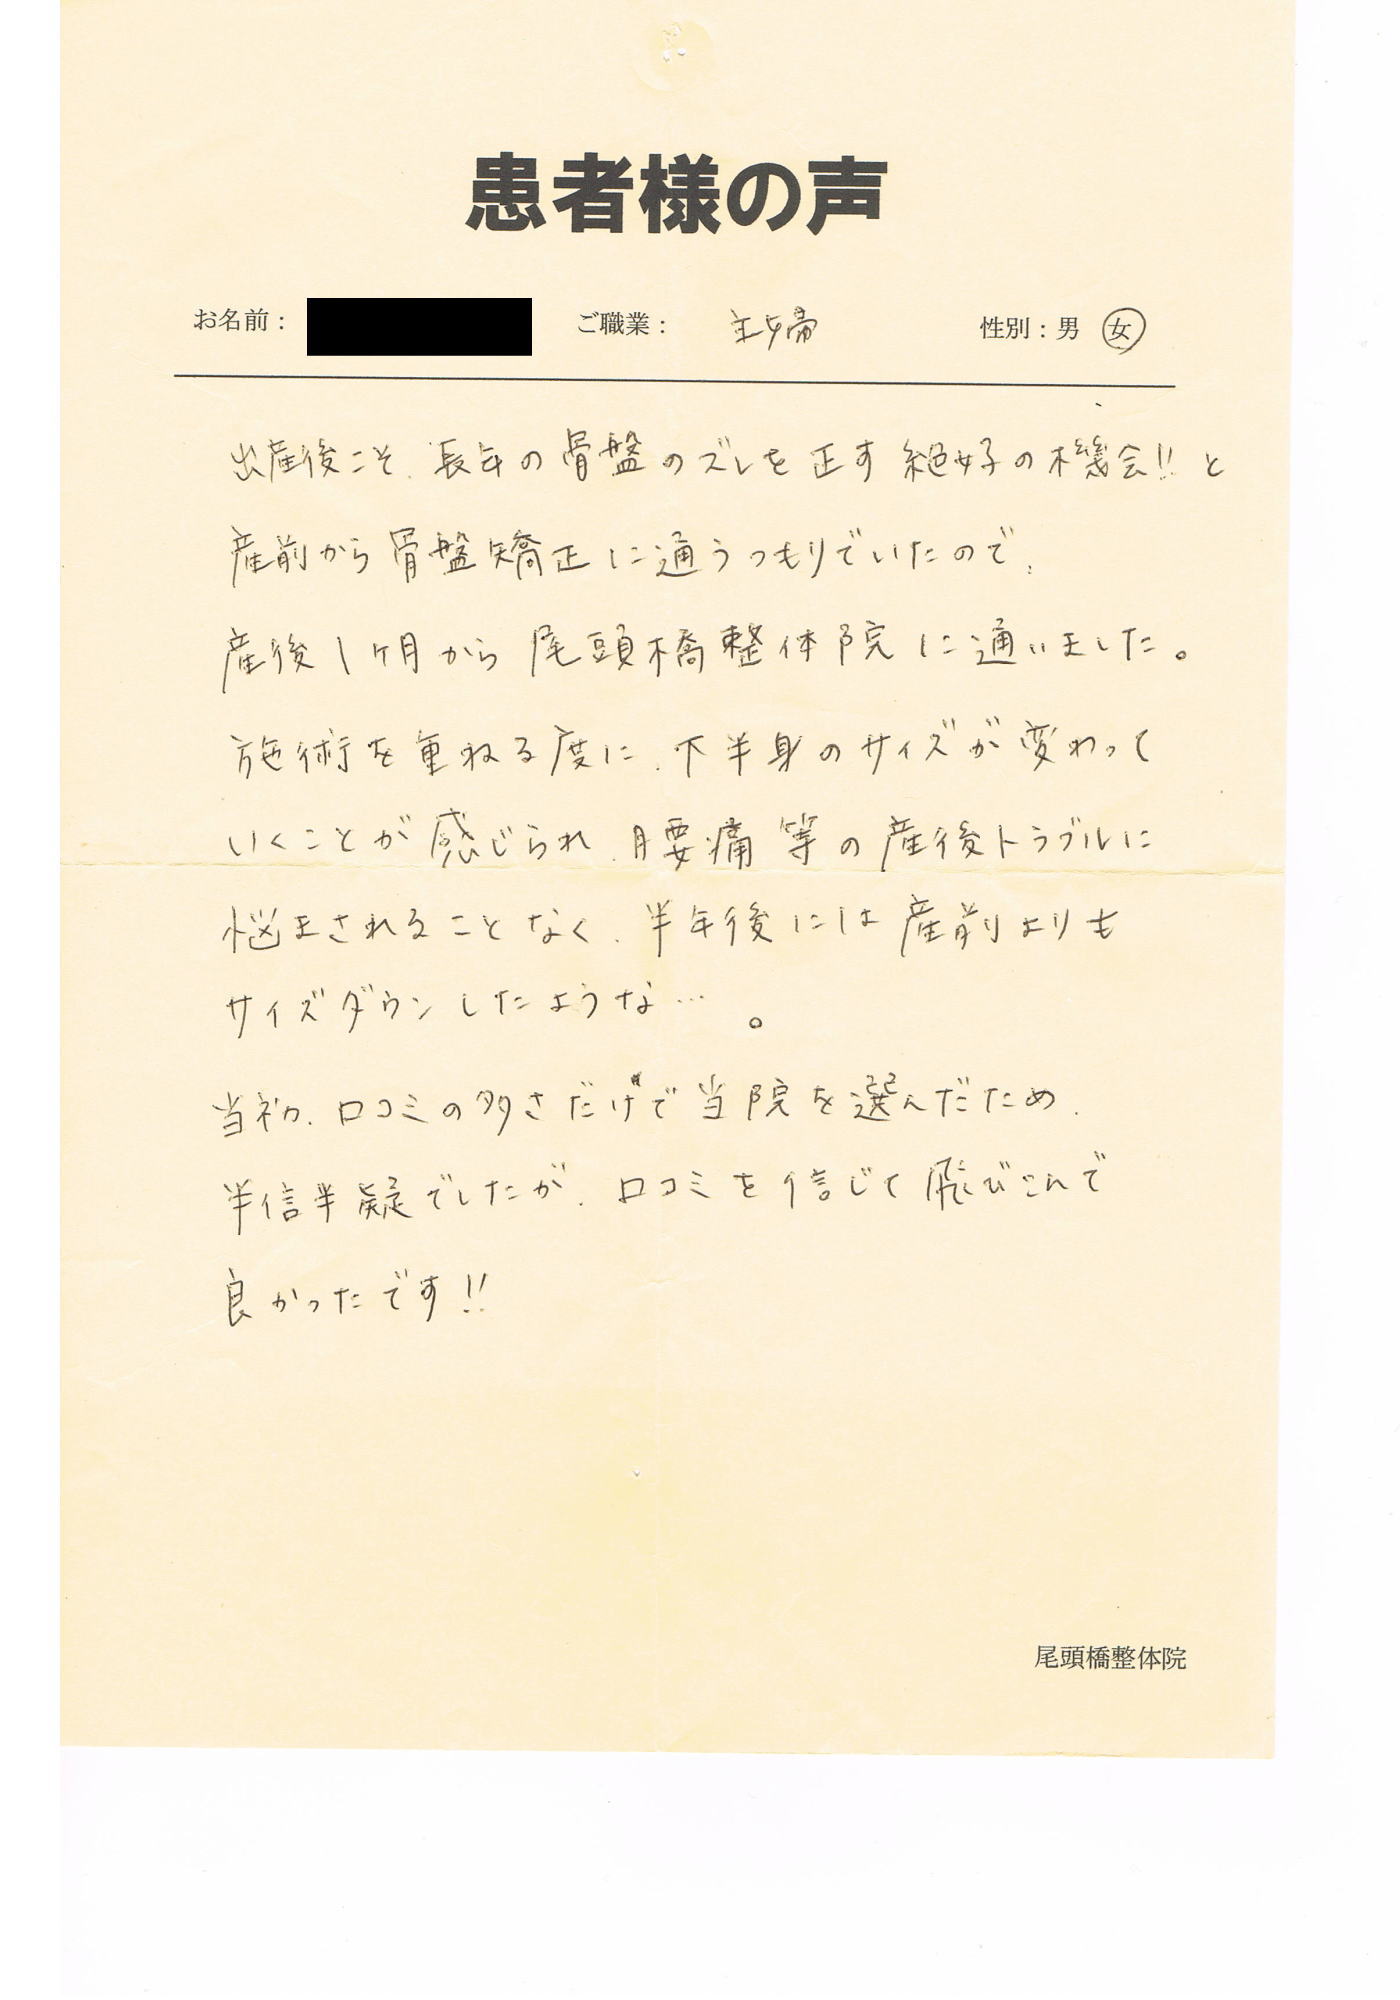 患者様の声
お名前： ご職業： 主婦 性別：男 女
出産後こそ、長年の骨盤のズレを正す絶好の機会!!と
産前から骨盤矯正に通うつもりでいたので、
産後1ヶ月から尾頭橋整体院に通いました。
施術を重ねる度に、下半身のサイズが変わって
いくことが感じられ、腰痛等の産後トラブルに
悩まされることなく、半年後には産前よりも
サイズダウンしたような…。
当初、口コミの多さだけで当院を選んだため、
半信半疑でしたが、口コミを信じて飛びこんで
良かったです!!
尾頭橋整体院